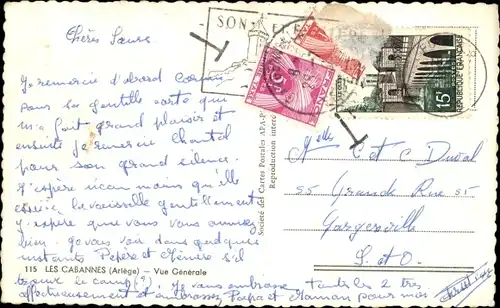 Chères Sœurs
Je remercie d'abord
pour la gentille carte qui
m'a fait grand plaisir et
ensuite je remercie Chantal
pour son grand silence.
J'espère néanmoins qu'elle
essuie la vaisselle gentillement
J'espère que vous vous amusez
bien. Je vais voir dans quelques
instants Pépère et Mémère s'il
le camp (?). Je vous embrasse toutes les 2 très
affectueusement et embrassez Papa et Maman pour moi.
115 LES CABANNES (Ariège) — Vue Générale
Société des Cartes Postales APA-P
Reproduction interdite
SON
FRANCE
15F
Melles C et C Duval
55 Grande Rue 55
Gargenville
S. et O.